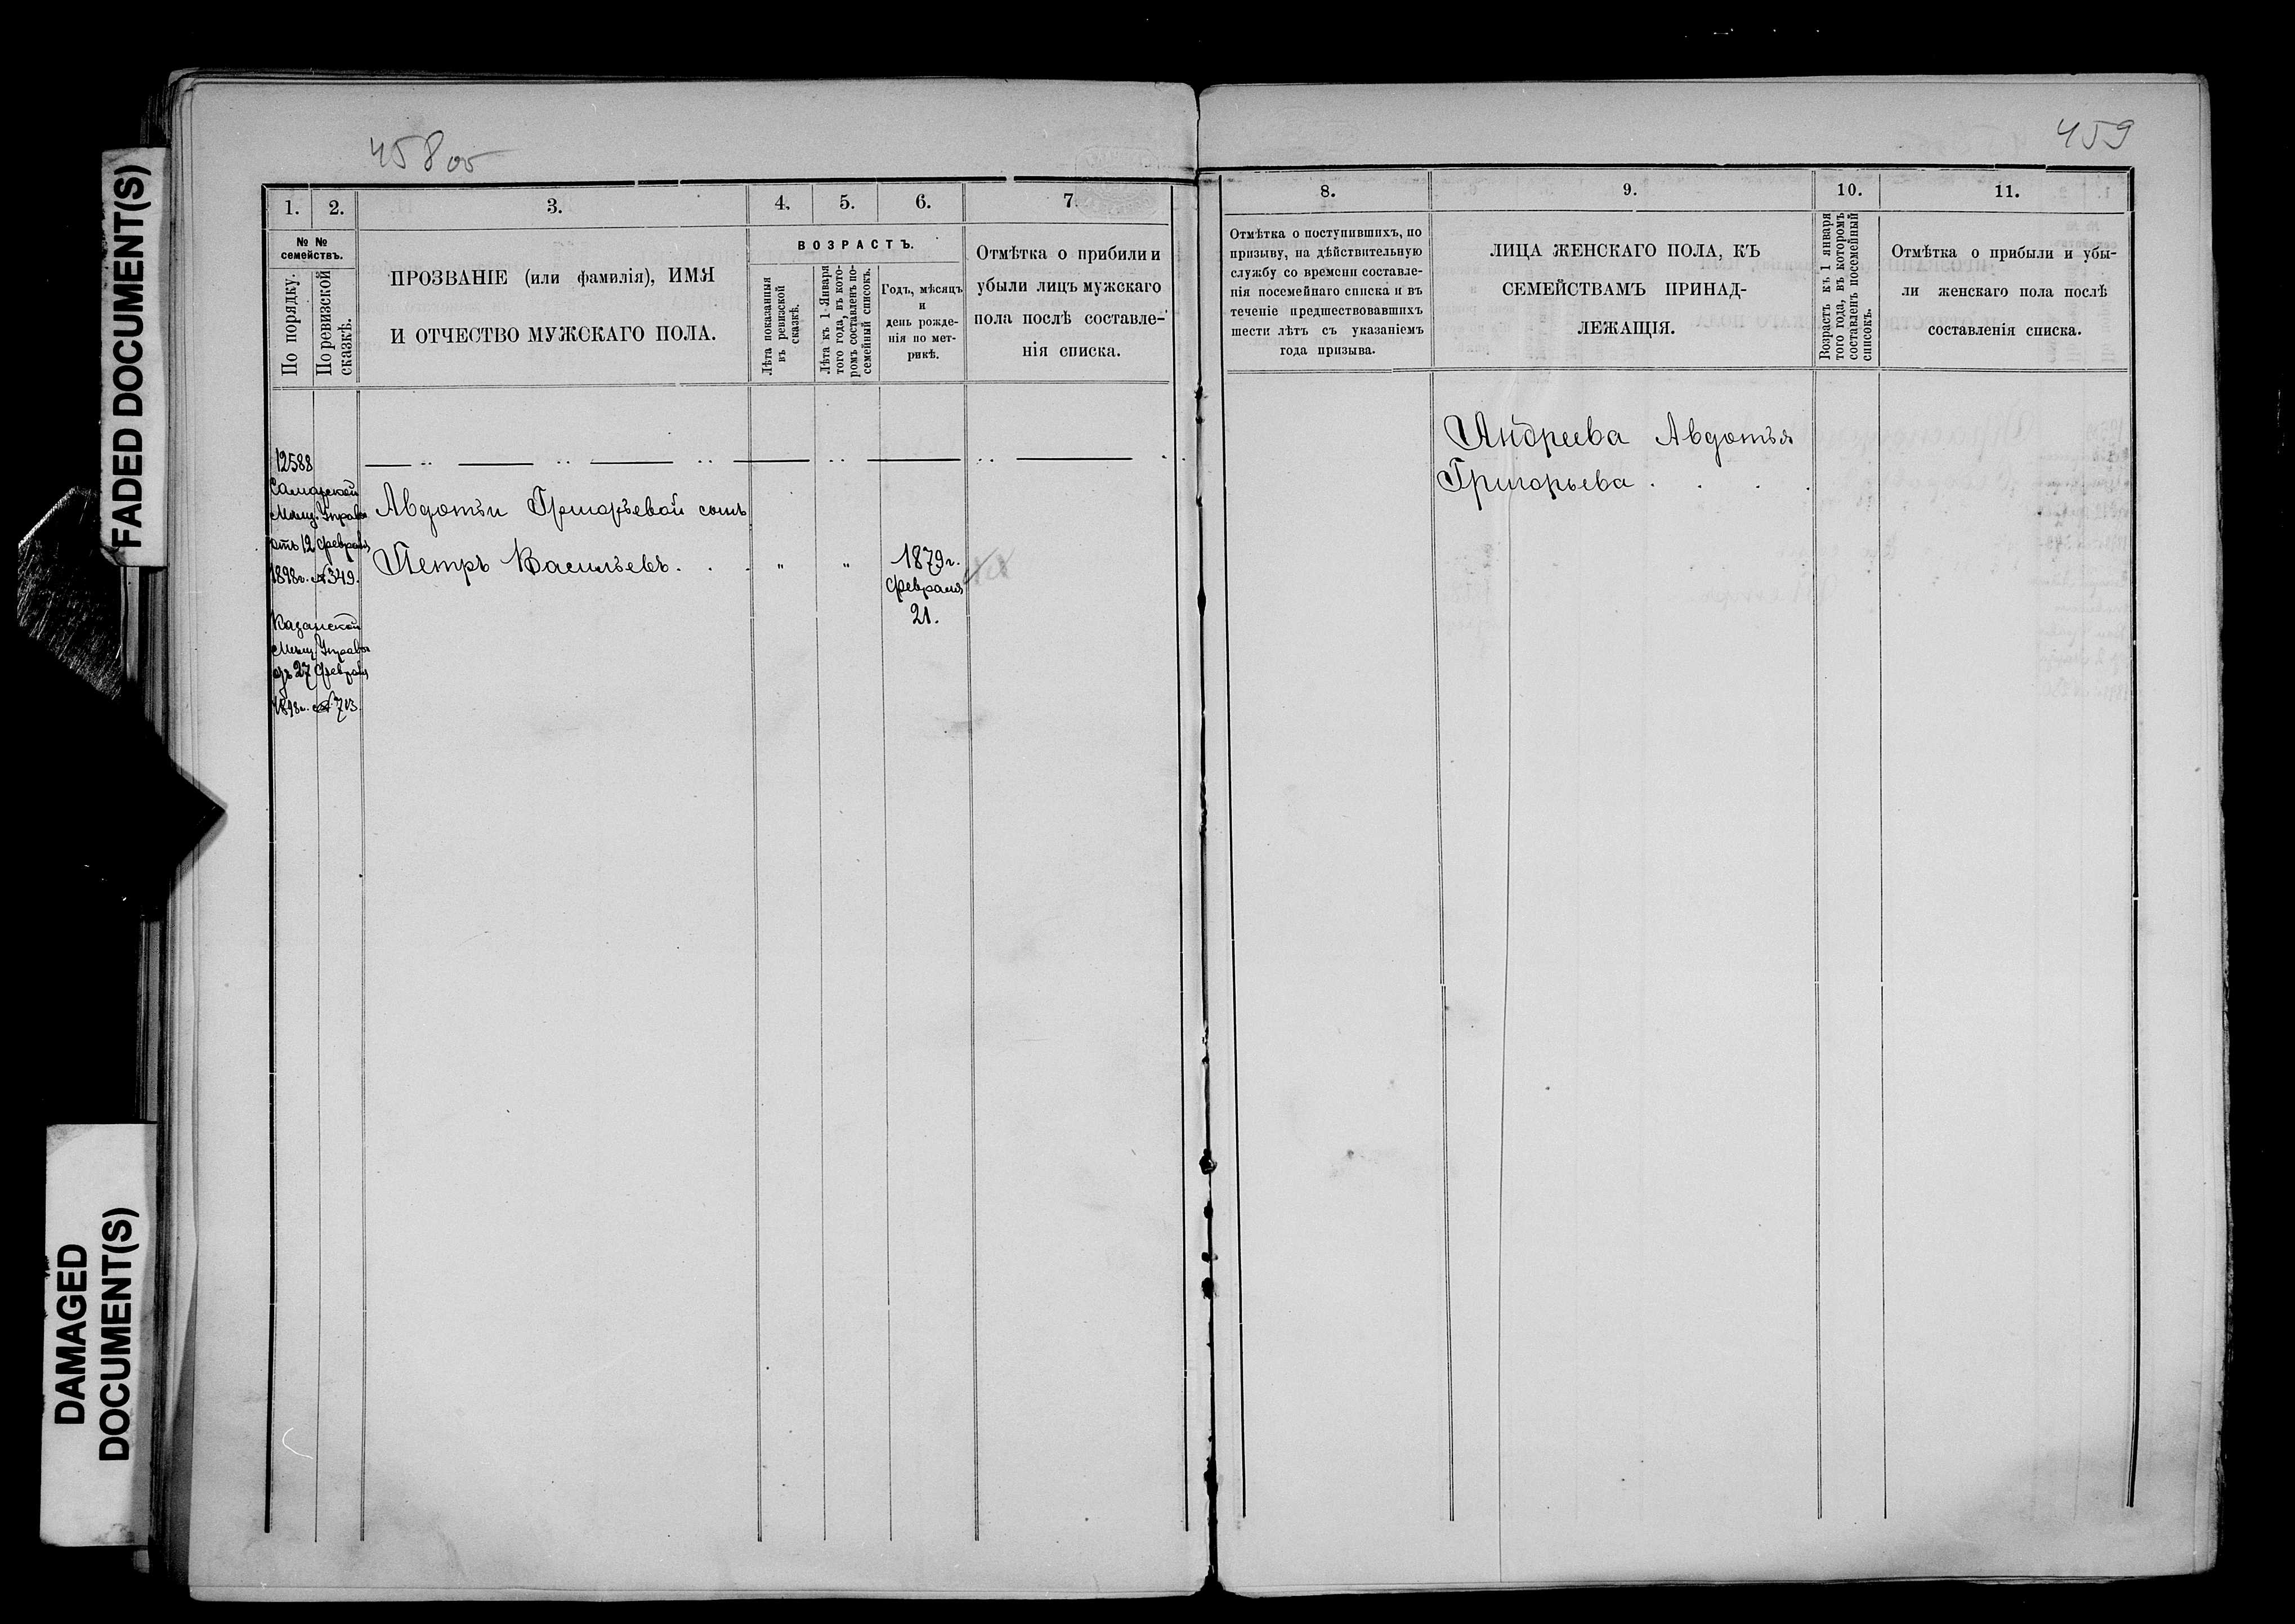 FADED DOCUMENT(S)
DAMAGED
DOCUMENT(S)
458 об
1. 2. 3. 4. 5. 6. 7.
№ №
семействъ.
По порядку.
По ревизской
сказкѣ.
ПРОЗВАНІЕ (или фамилія), ИМЯ
И ОТЧЕСТВО МУЖСКАГО ПОЛА.
ВОЗРАСТЪ.
Лѣта показанныя
въ ревизской
сказкѣ.
Лѣта къ 1 Января
того года, въ кото-
ромъ составленъ по-
семейный списокъ.
Годъ, мѣсяцъ
и
день рожде-
нія по мет-
рикѣ.
Отмѣтка о прибили и
убыли лицъ мужскаго
пола послѣ составле-
нія списка.
12588
Самарской
Мѣщ. Управы
отъ 12 февраля
1898 г. № 349.
Казанской
Мѣщ. Управы
27 февраля
1898 г. № 713.
Авдотьи Григорьевой сынъ
Петръ Васильевъ. . . " "
1879 г.
февраля
21.
459
8. 9. 10. 11.
Отмѣтка о поступившихъ, по
призыву, на дѣйствительную
службу со времени составле-
нія посемейнаго списка и въ
теченіе предшествовавшихъ
шести лѣтъ съ указаніемъ
года призыва.
ЛИЦА ЖЕНСКАГО ПОЛА, КЪ
СЕМЕЙСТВАМЪ ПРИНАД-
ЛЕЖАЩІЯ.
Возрастъ къ 1 января
того года, въ которомъ
составленъ посемейный
списокъ.
Отмѣтка о прибыли и убы-
ли женскаго пола послѣ
составленія списка.
Андреева Авдотья
Григорьева . . . .